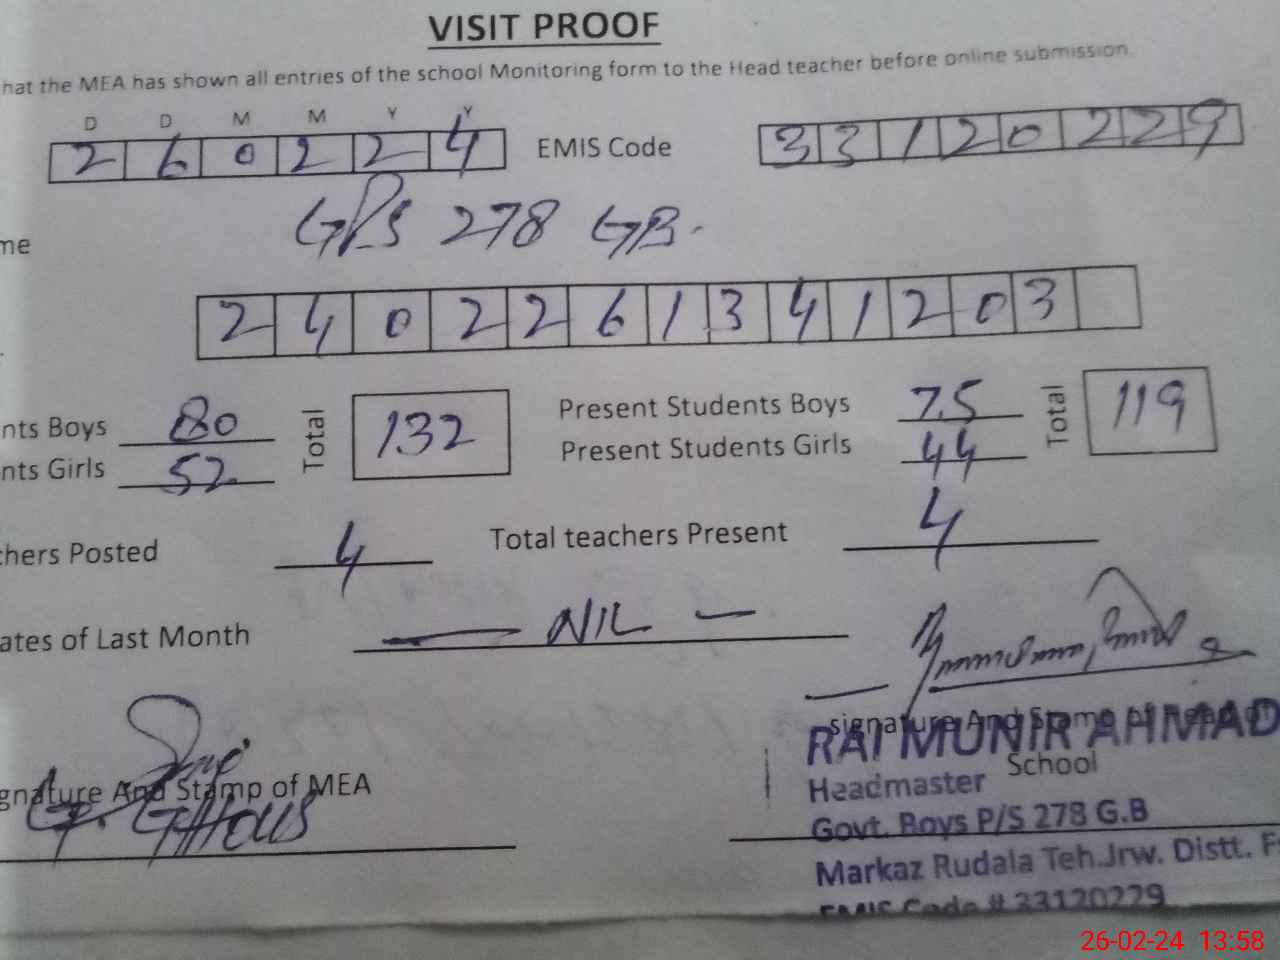 VISIT PROOF
hat the MEA has shown all entries of the school Monitoring form to the Head teacher before online submission.
D D M M Y Y
2 6 0 2 2 4 EMIS Code 3 3 1 2 0 2 2 9
me GPS 278 GB.
2 4 0 2 2 6 1 3 4 1 2 0 3
nts Boys 80 Total 132 Present Students Boys 75 Total 119
nts Girls 52 Present Students Girls 44
chers Posted 4 Total teachers Present 4
ates of Last Month — NIL —
signature And Stamp of
RAI MUNIR AHMAD
School
Headmaster
gnature And Stamp of MEA
Govt. Boys P/S 278 G.B
Markaz Rudala Teh.Jrw. Distt. F
EMIS Code # 33120229
26-02-24 13:58